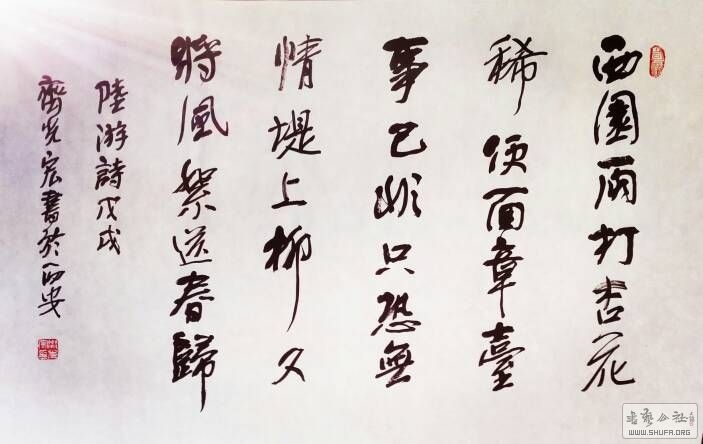 西園雨打杏花
稀便面章臺
事已非只恐無
情堤上柳又
將風絮送春歸
陸游詩戊戌
齊光宏書於西安
WWW.SHUFA.ORG